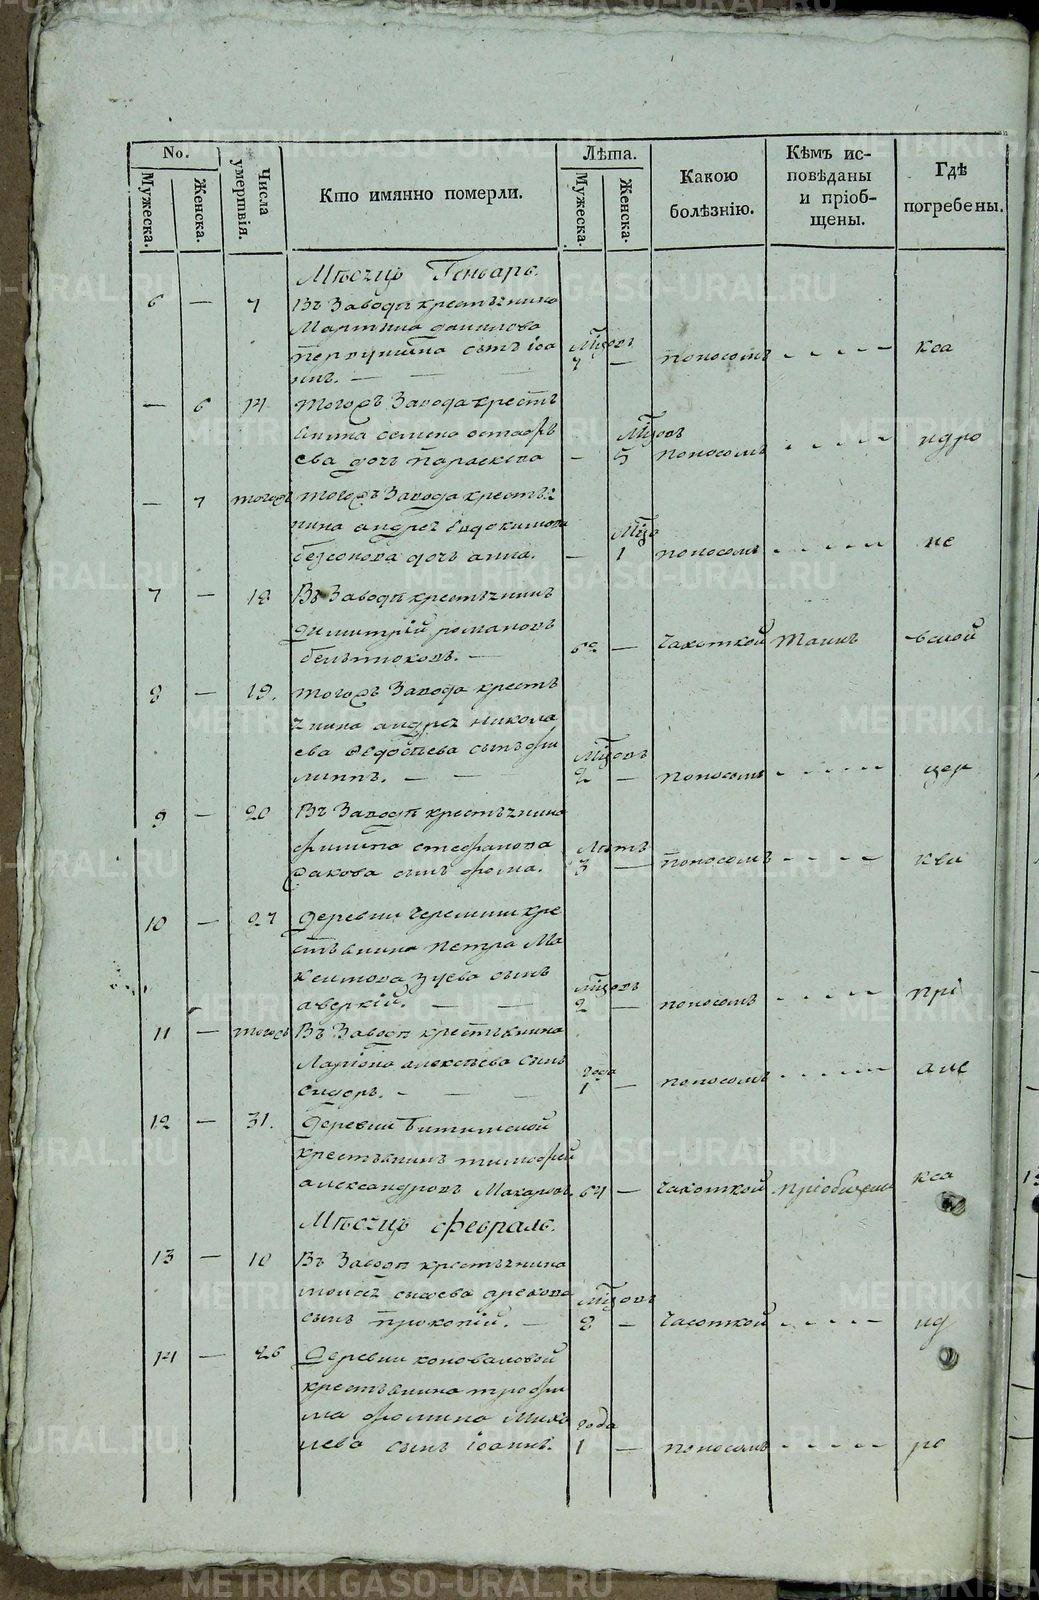 No.
Мужеска.
Женска.
Числа умертвія.
Кто имянно померли.
Лѣта.
Мужеска.
Женска.
Какою болѣзнію.
Кѣмъ исповѣданы и пріобщены.
Гдѣ погребены.
Мѣсяцъ Генварь.
6 — 7 Въ Заводѣ крестьянина
Мартина данилова
сынъ іоа мѣсяцовъ
ннъ. — — — 7 — поносомъ - - - - - кса
— 6 14 тогожъ Завода кресть
янина семена остафь мѣсяцовъ
ева дочь параскева — 5 поносомъ - - - - - ндро
— 7 тогожъ тогожъ Завода крестья
нина андрея Евдокимова мѣсяца
дочь анна. — 1 поносомъ - - - - - не
7 — 18 Въ Заводѣ крестьянинъ
Димитрій романовъ
— — чахоткой вской
8 — 19. тогожъ Завода кресть
янина андрея никола
ева Федосѣева сынъ фи мѣсяцовъ
липпъ. — — 2 — поносомъ - - - - - цер
9 — 20 Въ Заводѣ крестьянина
филипа стефанова лѣтъ
сынъ фома. 3 — поносомъ - - - - кви
10 — 27 Деревни Черемши кре
стьянина петра Ма
ксимова Зуева сынъ мѣсяцовъ
аверкій. — — 2 — поносомъ - - - - - прі
11 — тогожъ Въ Заводѣ крестьянина
Ларіона алексѣева сынъ года
сидоръ. — — — 1 — поносомъ - - - - - - аме
12 — 31. Деревни
крестьянинъ тимофей
александровъ Макаровъ. 64 — чахоткой пріобщенъ кса
Мѣсяцъ февраль.
13 — 10 Въ Заводѣ крестьянина
мѣсяцовъ
сынъ прокопій. — 2 — Чахоткой - - - - - нд
14 — 26 Деревни коноваловой
крестьянина трофи
ма фомина Миха года
лева сынъ іоаннъ. 1 — поносомъ - - - - - ро
METRIKI.GASO-URAL.RU